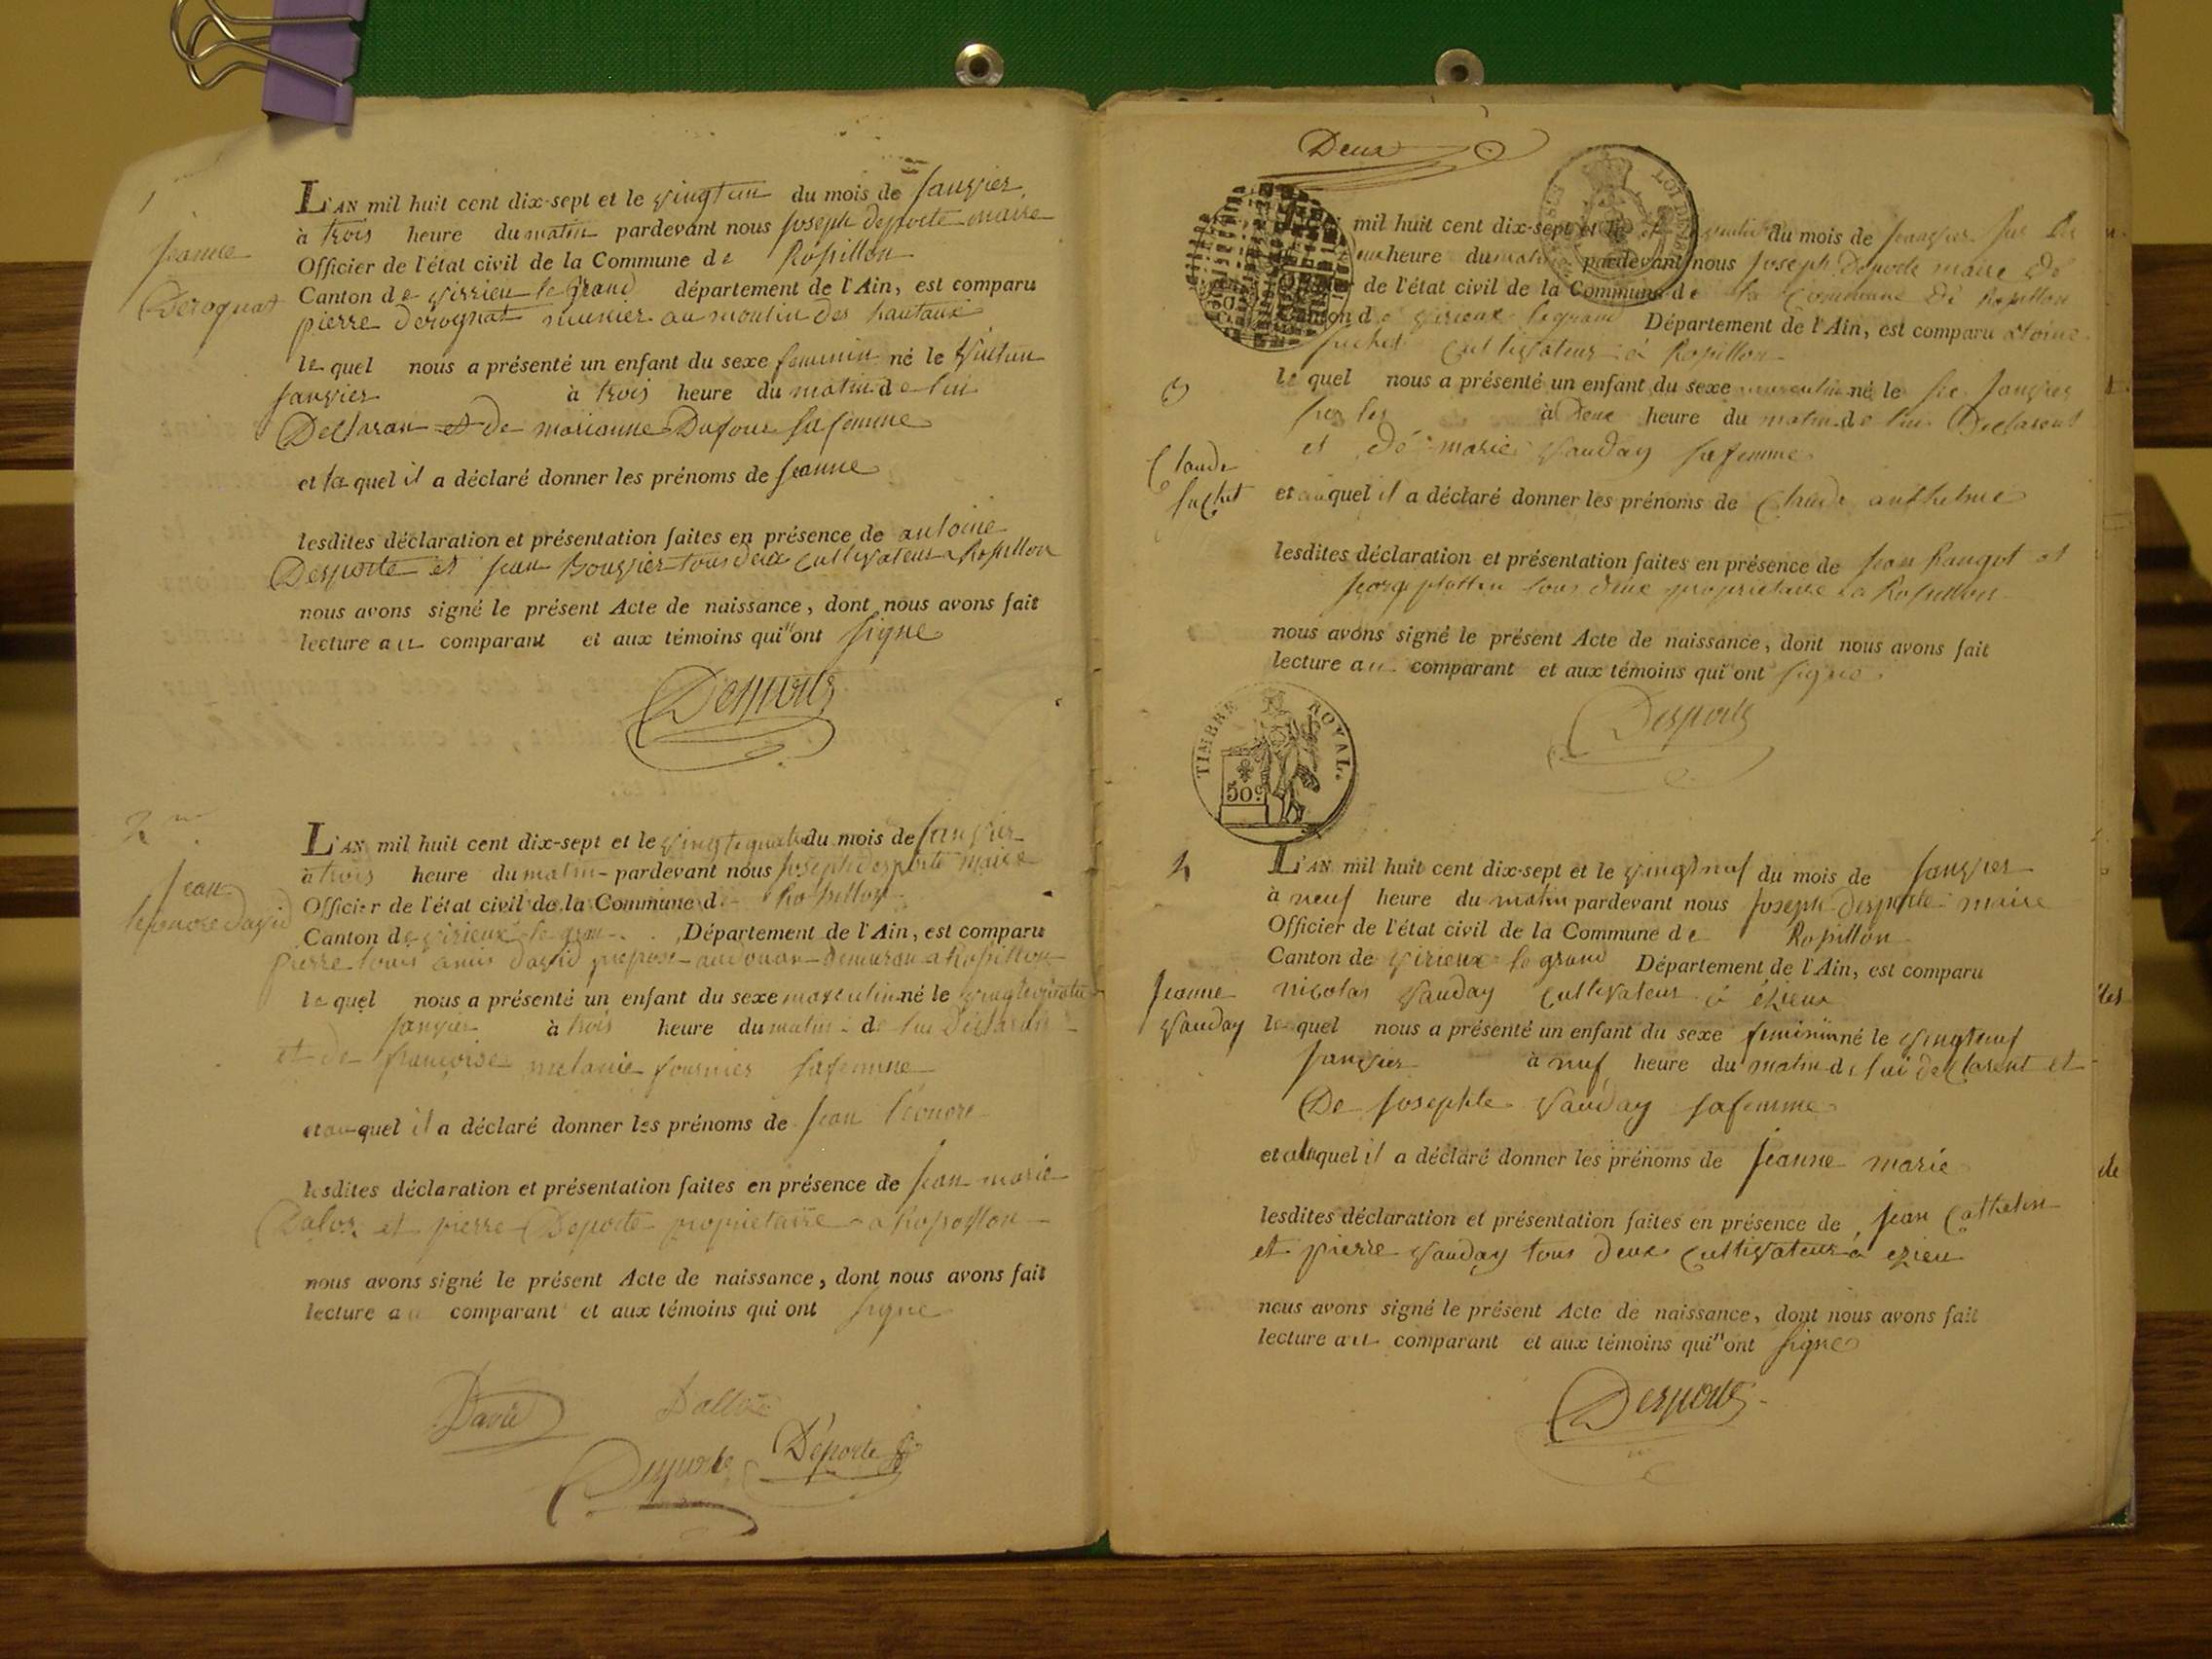 1
Jeanne
Derognat
L'AN mil huit cent dix-sept et le vingt un du mois de Janvier
à trois heure du matin pardevant nous Joseph Deporte maire
Officier de l'état civil de la Commune de Rossillon
Canton de Virrieu le Grand département de l'Ain, est comparu
pierre derognat munier au moulin des hautaux
le quel nous a présenté un enfant du sexe feminin né le Vintun
Janvier à trois heure du matin de lui
Declaran et de marianne Dufour sa femme
et la quel il a déclaré donner les prénoms de Jeanne
lesdites déclaration et présentation faites en présence de antoine
Desporte et jean Bouvier tous deux Cultivateur a Rossillon
nous avons signé le présent Acte de naissance, dont nous avons fait
lecture au comparant et aux témoins qui ont signe
Desporte
2
Jean
leonore david
L'AN mil huit cent dix-sept et le vingt quatre du mois de Janvier
à trois heure du matin pardevant nous Joseph desporte maire
Officier de l'état civil de la Commune d Rossillon
Canton de virieux le gran Département de l'Ain, est comparu
pierre louis david a Rossillon
le quel nous a présenté un enfant du sexe masculin né le vingt quatre
Janvier à trois heure du matin de lui Declaran
et de françoise melanie fournier sa femme
et au quel il a déclaré donner les prénoms de Jean leonore
lesdites déclaration et présentation faites en présence de Jean marie
Daloz et pierre Deporte proprietaire a Rossillon
nous avons signé le présent Acte de naissance, dont nous avons fait
lecture a comparant et aux témoins qui ont signe
David Dalloz
Desporte Déporte
Deux
LOI DE
mil huit cent dix-sept et le du mois de Janvier
heure du matin pardevant nous Joseph Deporte maire de
de l'état civil de la Commune de la Commune de Rossillon
Canton de virieux le grand Département de l'Ain, est comparu
Cultivateur à Rossillon
3
Claude
le quel nous a présenté un enfant du sexe masculin né le Janvier
à Deux heure du matin de lui Declarent
et dé marie Vauday sa femme
et au quel il a déclaré donner les prénoms de Claude anthelme
lesdites déclaration et présentation faites en présence de Jean et
tous deux proprietaire a Rossillon
nous avons signé le présent Acte de naissance, dont nous avons fait
lecture au comparant et aux témoins qui ont signe
Desporte
TIMBRE ROYAL.
50c
4
Jeanne
Vauday
L'AN mil huit cent dix-sept et le vingt neuf du mois de Janvier
à neuf heure du matin pardevant nous Joseph Desporte maire
Officier de l'état civil de la Commune de Rossillon
Canton de virieux le grand Département de l'Ain, est comparu
nicolas Vauday Cultivateur à ézieux
le quel nous a présenté un enfant du sexe feminin né le vingt neuf
Janvier à neuf heure du matin de lui declarent et
De Josephte Vauday sa femme
et quel il a déclaré donner les prénoms de Jeanne marie
lesdites déclaration et présentation faites en présence de Jean Cathelin
et pierre Vauday tous deux Cultivateur à ezieu
nous avons signé le présent Acte de naissance, dont nous avons fait
lecture au comparant et aux témoins qui ont signe
Desporte